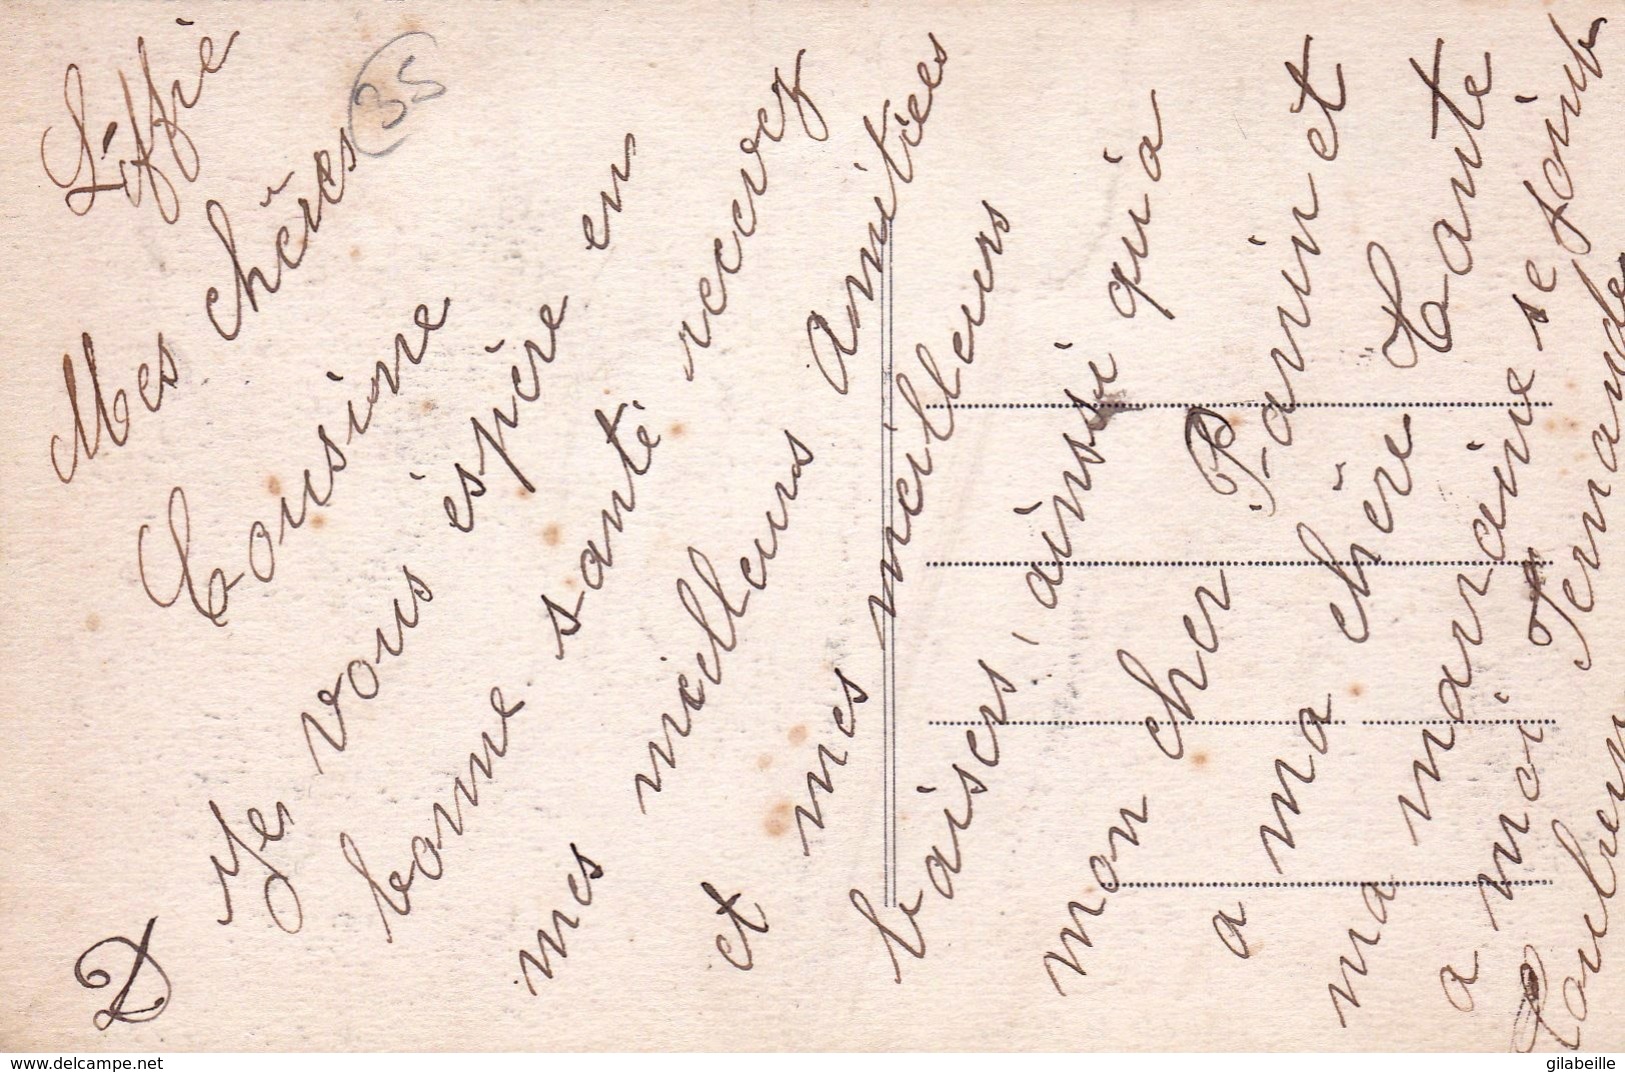 Liffré
35
Mes chêres
Cousine
Je vous éspère en
bonne santé recevez
mes meilleurs amitiées
et mes meilleurs
baisers ainsi qu'a
mon cher Parin et
a ma chêre Tante
ma marraine se
a moi Fernande
D
www.delcampe.net
gilabeille